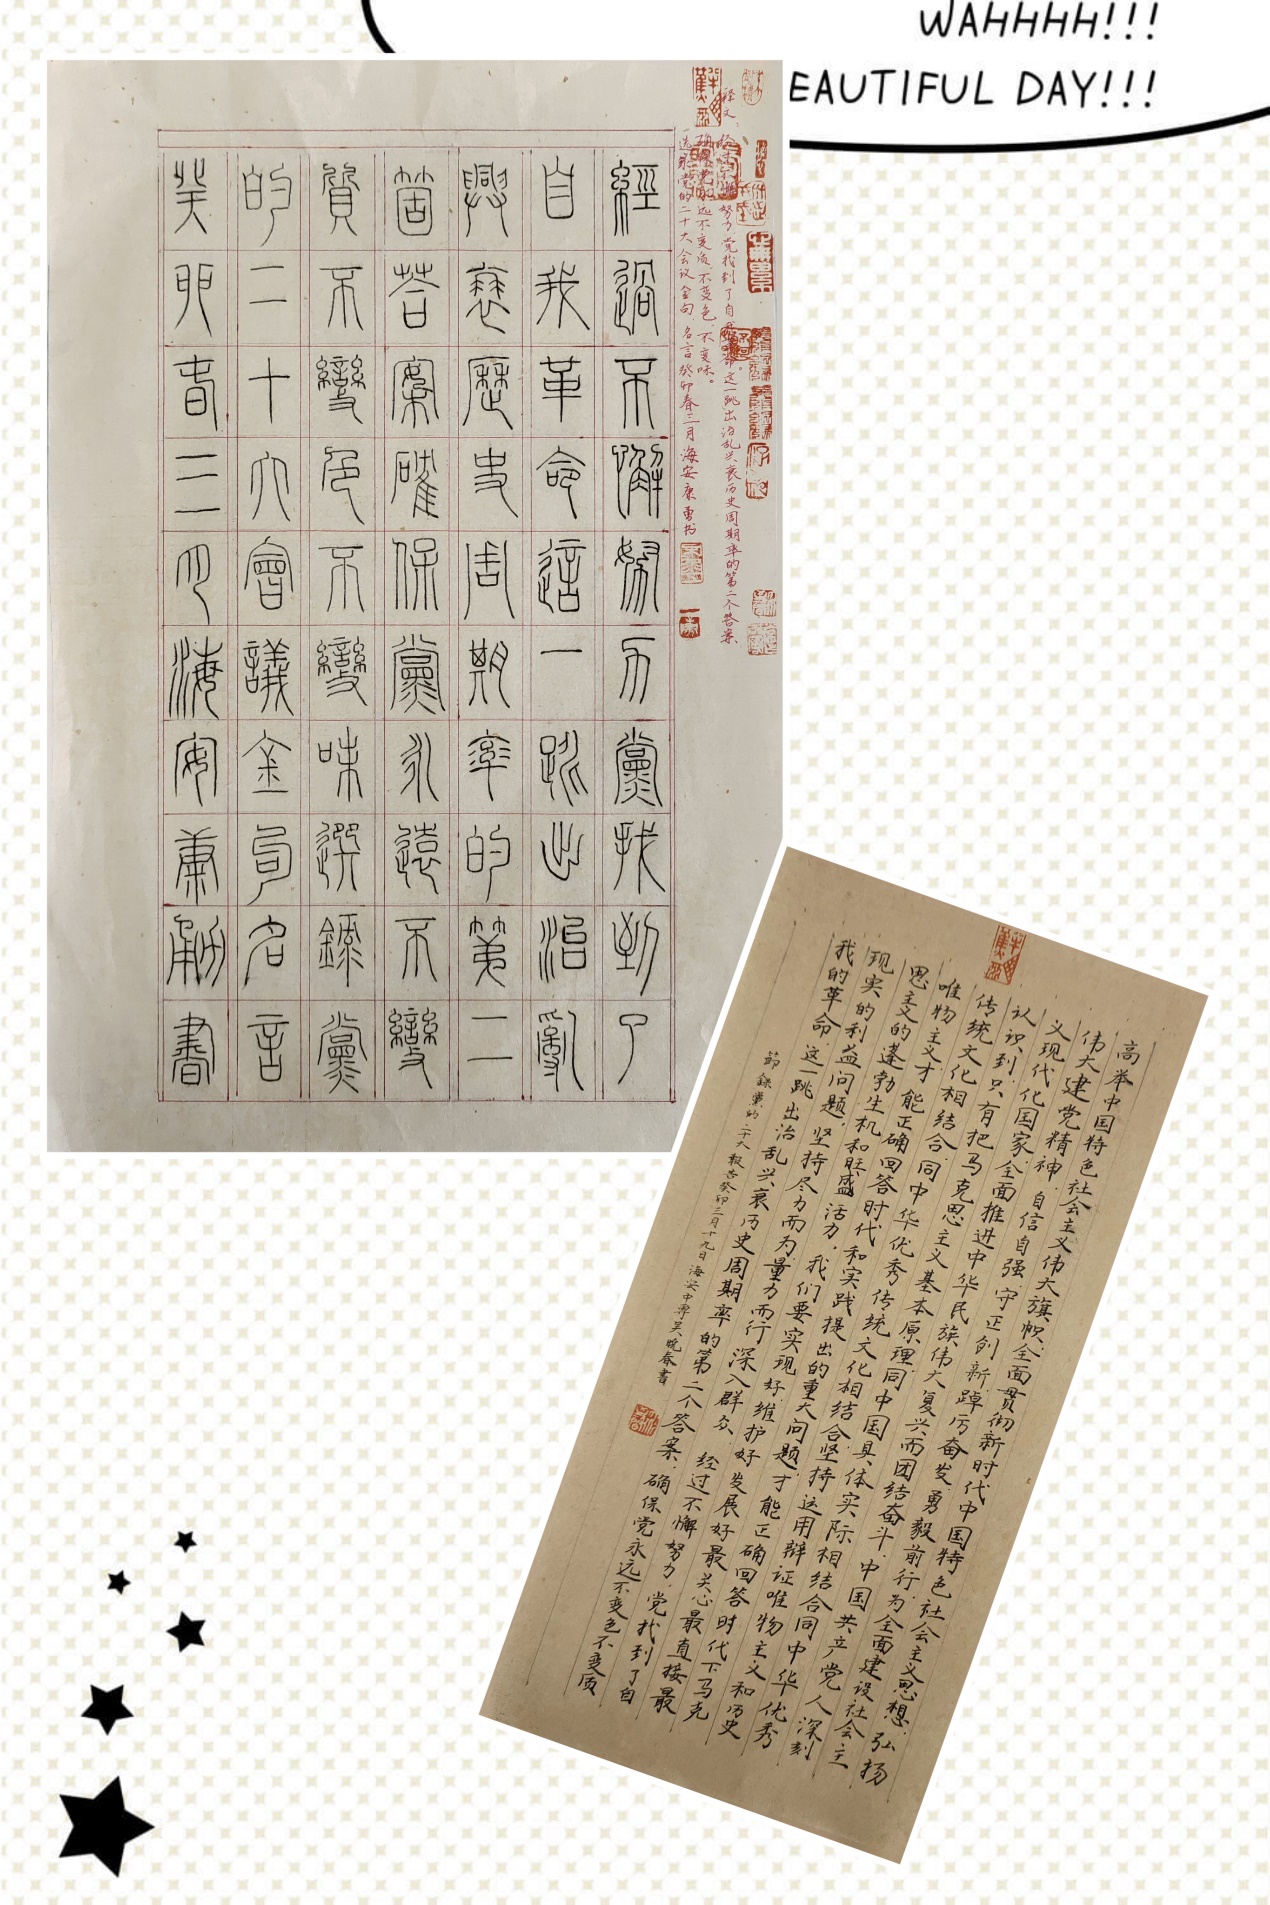 WAHHHH!!!
EAUTIFUL DAY!!!
释文
经过不懈努力党找到了自我革命这一跳出治乱兴衰历史周期率的第二个答案
确保党永远不变质、不变色、不变味。
选录党的二十大会议金句名言癸卯春三月海安康勇书
經過不懈努力黨找到了
自我革命這一跳出治亂
興衰歷史周期率的第二
箇荅案確保黨永遠不變
質不變色不變味選錄黨
的二十大會議金句名言
癸卯春三月海安康勇書
高举中国特色社会主义伟大旗帜.全面贯彻新时代中国特色社会主义思想.弘扬
伟大建党精神.自信自强.守正创新.踔厉奋发.勇毅前行.为全面建设社会主
义现代化国家.全面推进中华民族伟大复兴而团结奋斗.中国共产党人深刻
认识到.只有把马克思主义基本原理同中国具体实际相结合同中华优秀
传统文化相结合.同中华优秀传统文化相结合坚持运用辩证唯物主义和历史
唯物主义才能正确回答时代和实践提出的重大问题才能正确回答时代下马克
思主义的蓬勃生机和旺盛活力.我们要实现好维护好发展好最关心最直接最
现实的利益问题.坚持尽力而为量力而行深入群众 经过不懈努力.党找到了自
我的革命.这一跳出治乱兴衰历史周期率的第二个答案.确保党永远不变色不变质
節録黨的二十大报告癸卯三月十九日海安中專吴晚春書